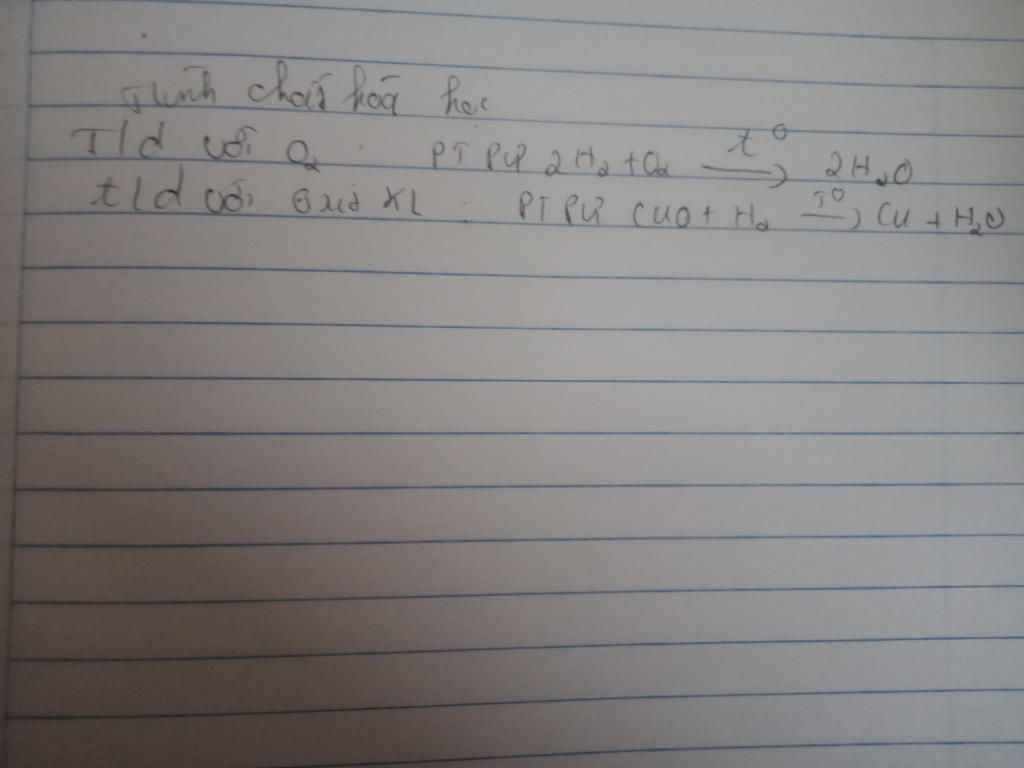 Tính chất hoá học
T/d với O2 PTPƯ 2H2 + O2 t⁰→ 2H2O
t/d với oxit KL : PTPƯ CuO + H2 T⁰→ Cu + H2O